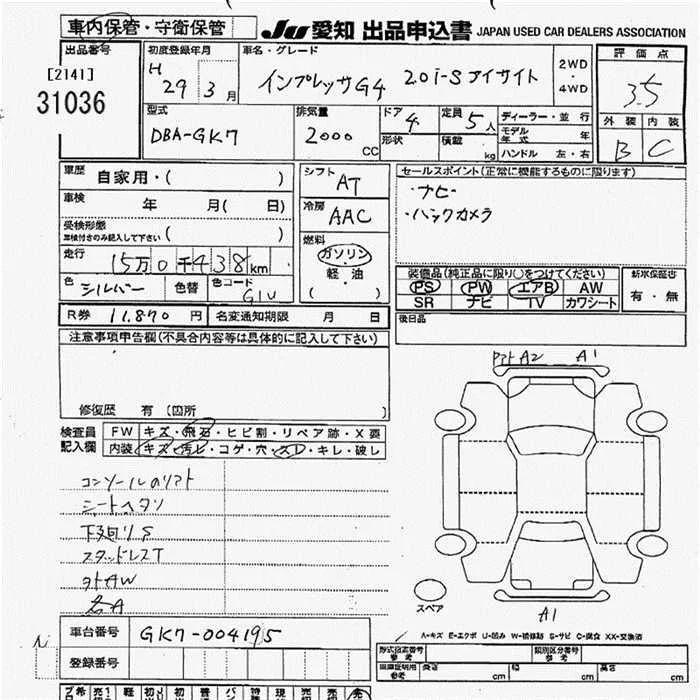 車内保管・守衛保管
JU 愛知 出品申込書 JAPAN USED CAR DEALERS ASSOCIATION
出品番号 [2141] 31036
初度登録年月 H 29 3月
車名・グレード インプレッサG4 2.0i-S アイサイト
2WD・4WD
評価点 3.5
外装 B 内装 C
型式 DBA-GK7
排気量 2000 CC
ドア 4 形状
定員 5人 積載 kg
ディーラー・並行
モデル年式 年
ハンドル 左・右
車歴 自家用・( )
車検 年 月( 日)
受検形態 車検付きのみ記入して下さい ( )
走行 15万0千438km
色 シルバー 色替 色コード G1U
シフト AT
冷房 AAC
燃料 ガソリン・軽油・( )
セールスポイント(正常に機能するものに限ります)
・ナビー
・バックカメラ
装備品(純正品に限り○をつけてください)
PS PW エアB AW
SR ナビ TV カワシート
新車保証書 有・無
後日品
R券 11,870円 名変通知期限 月 日
注意事項申告欄(不具合内容等は具体的に記入して下さい)
修復歴 有 [箇所 ]
検査員記入欄
FW キズ・飛石・ヒビ割・リペア跡・X要
内装 キズ・汚レ・コゲ・穴・スレ・キレ・破し
シートヘタリ
下廻りS
スタッドレスT
A2 A1
スペア
A1
A-キズ E-エクボ U-凹み W-補修跡 S-サビ C-腐食 XX-交換済
車台番号 GK7-004195
登録番号
型式指定番号 参考 類別区分番号 参考
長さ cm 幅 cm 高さ cm